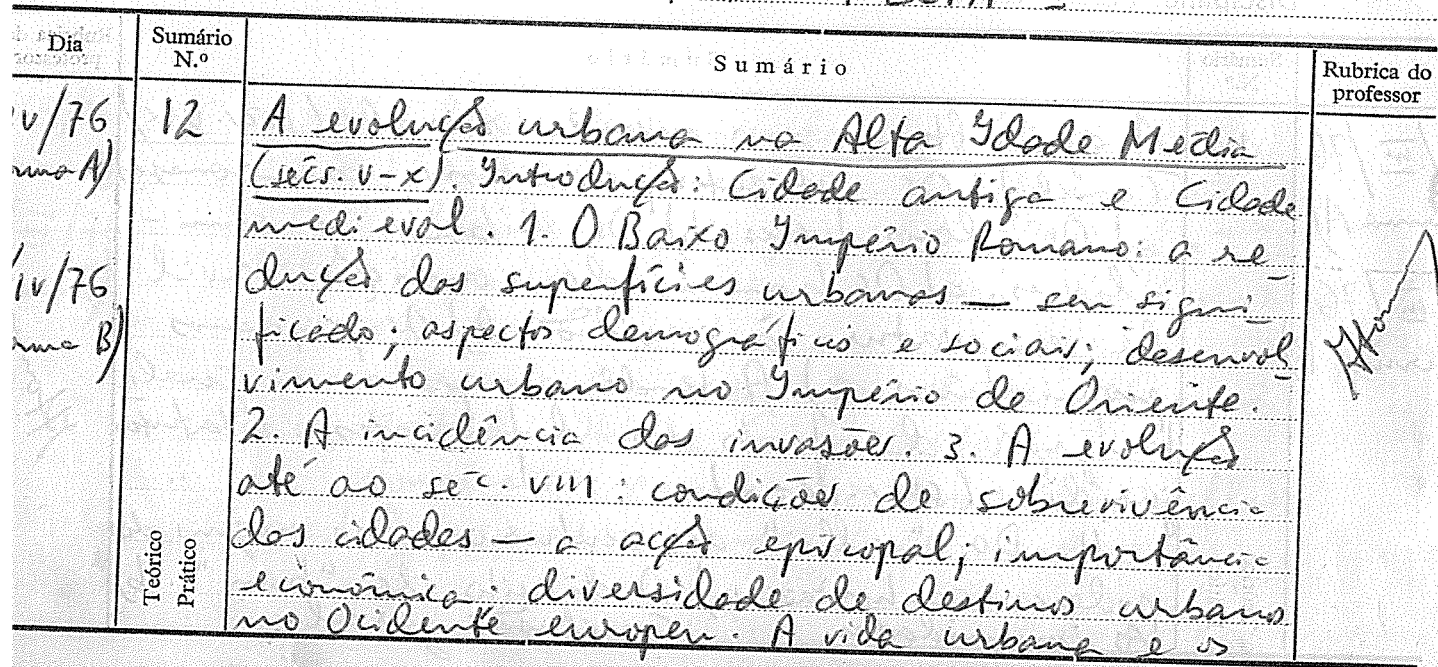 Dia
Sumário N.º
Sumário
Rubrica do professor
IV/76
12
A evolução urbana na Alta Idade Média
(sécs. V-X). Introdução: Cidade antiga e Cidade
medieval. 1. O Baixo Império Romano: a re-
dução das superfícies urbanas — seu signi-
ficado; aspectos demográficos e sociais; desenvol
vimento urbano no Império de Oriente.
2. A incidência das invasões. 3. A evolução
até ao séc. VIII: condições de sobrevivência
das cidades — a acção episcopal; importância
económica; diversidade de destinos urbanos
no Ocidente europeu. A vida urbana e os
A)
/IV/76
B)
Teórico
Prático